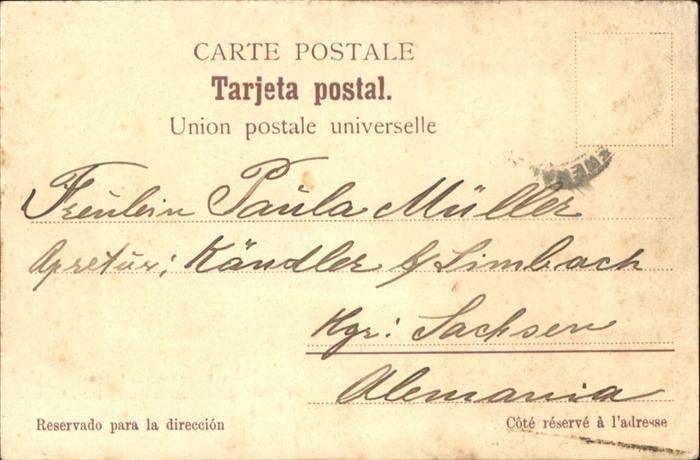 CARTE POSTALE
Tarjeta postal.
Union postale universelle
Fräulein Paula Müller
Apretur; Kändler b/ Limbach
Kgr: Sachsen
Alemania
Reservado para la dirección
Côté réservé à l'adresse